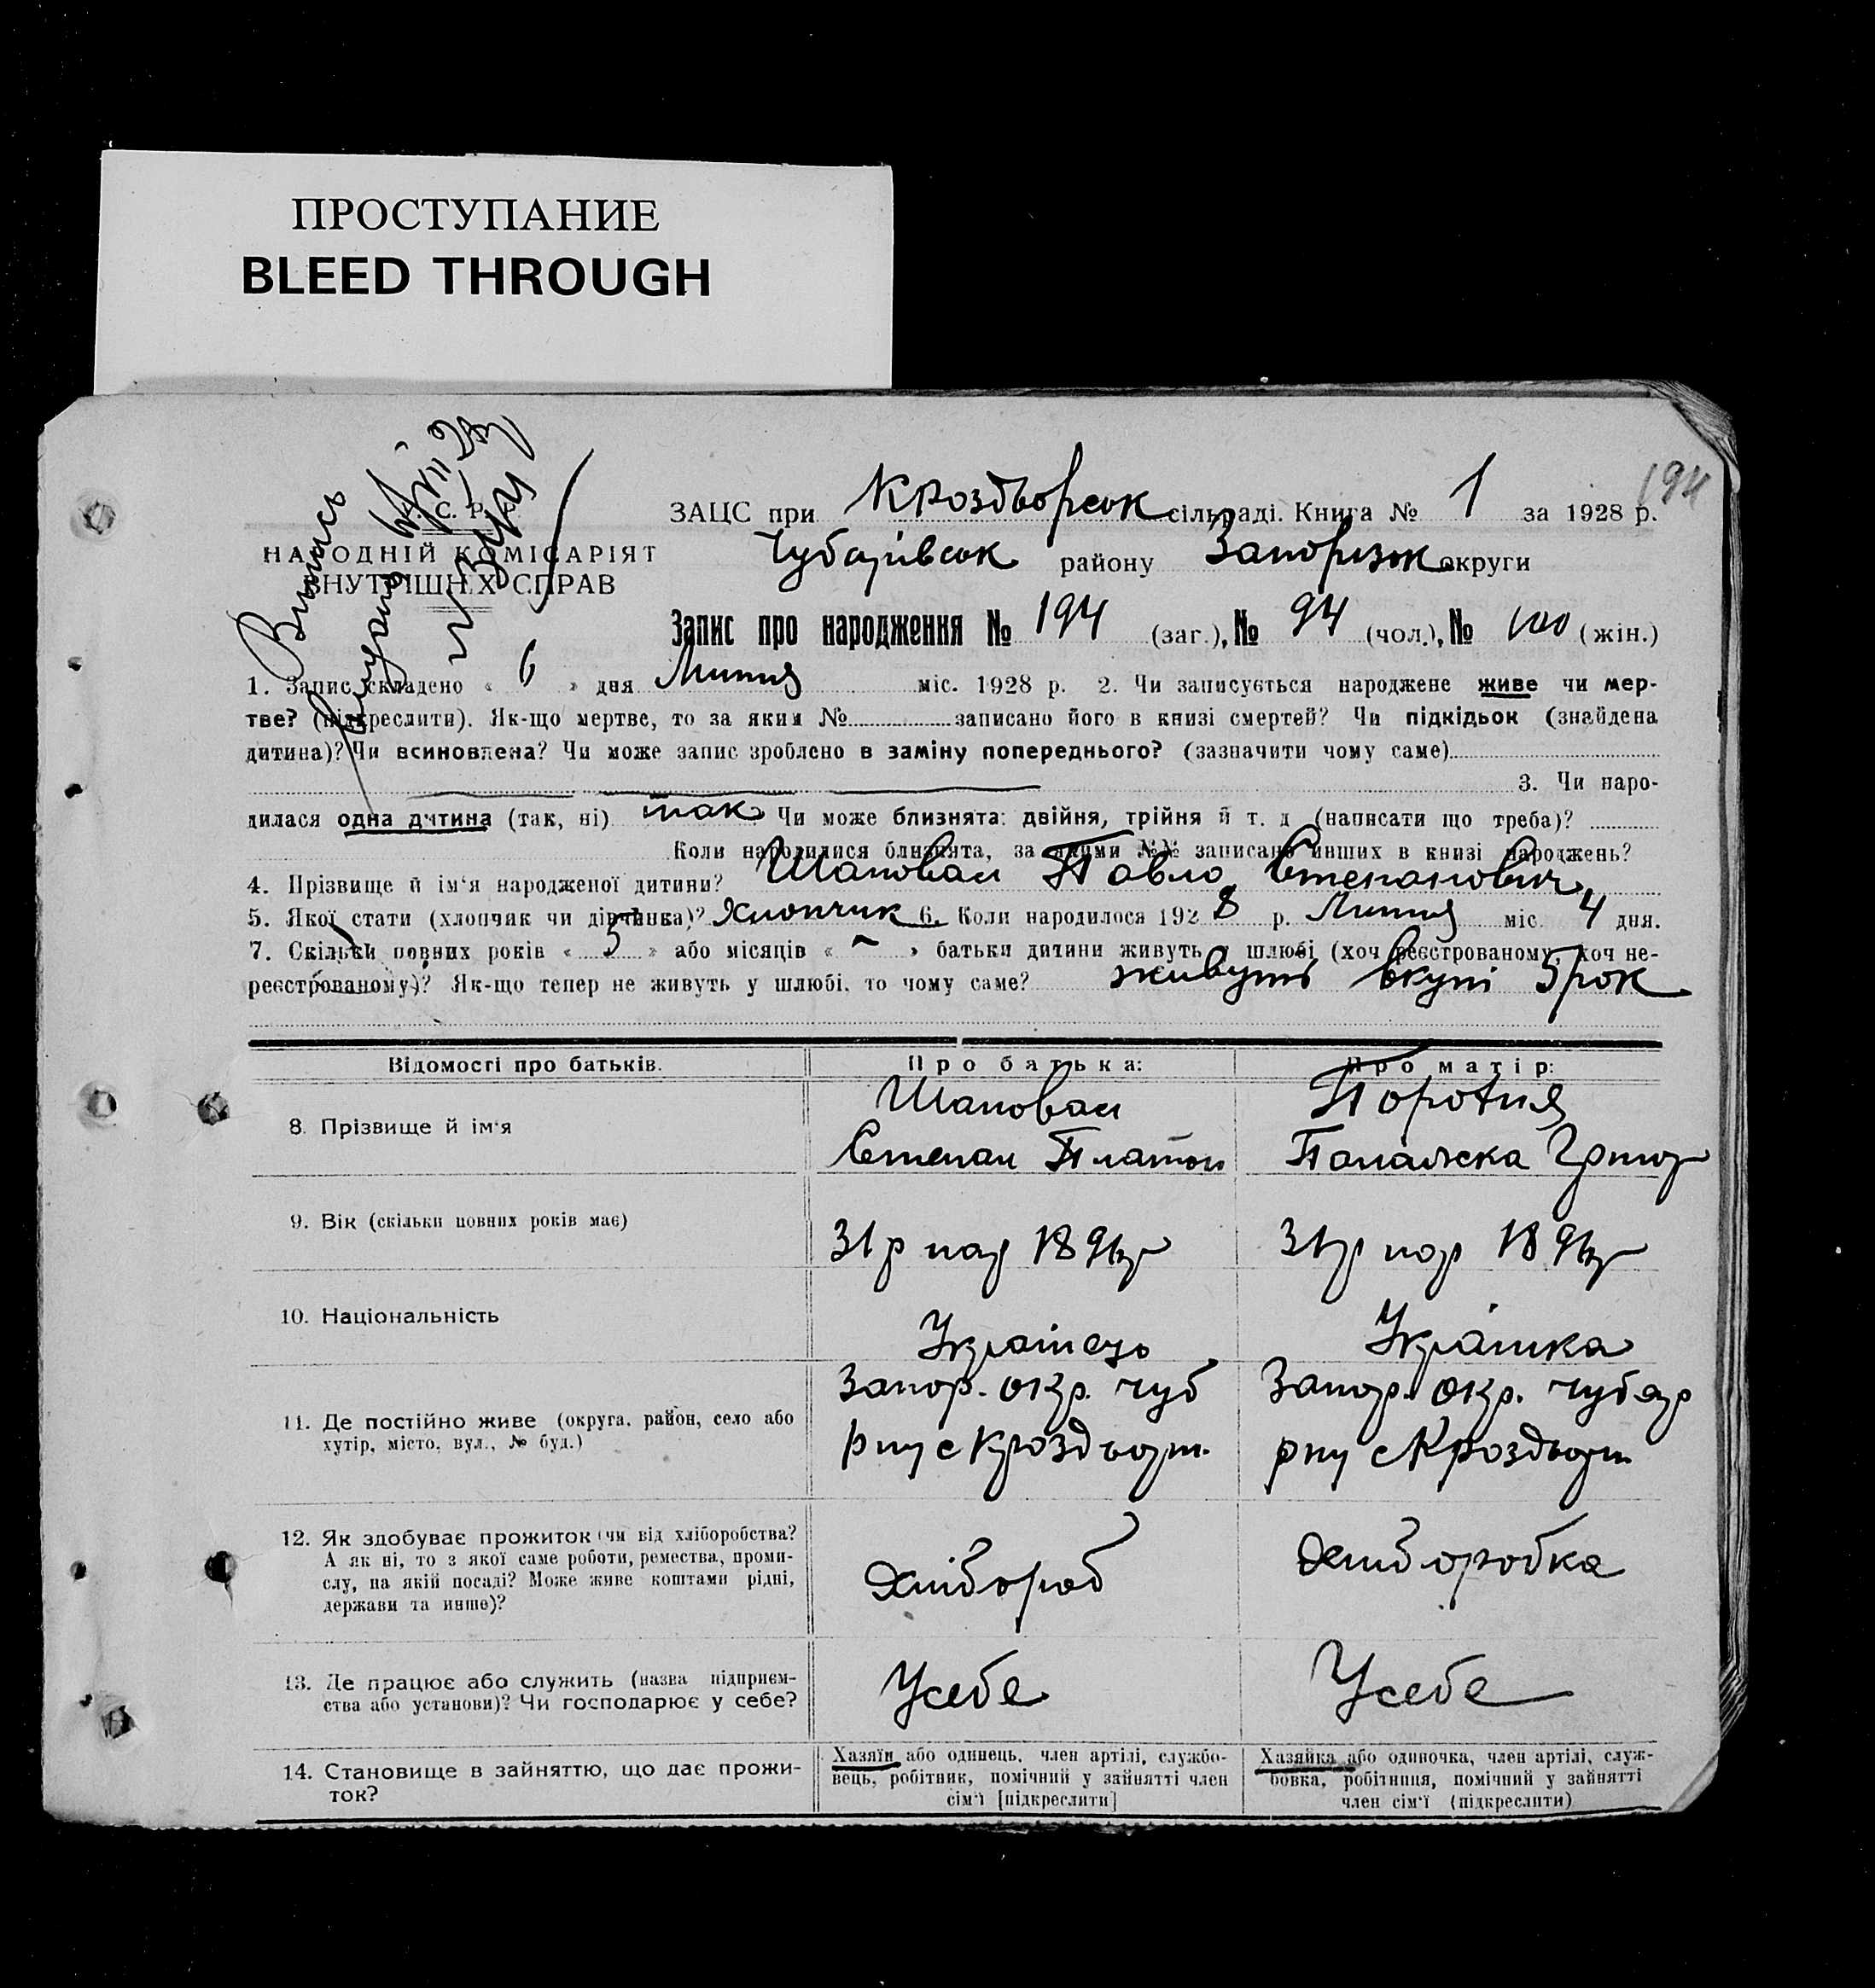 ПРОСТУПАНИЕ
BLEED THROUGH
194
С. Р.
НАРОДНІЙ КОМІСАРІЯТ
ВНУТРІШНІХ СПРАВ
Випись
ЗАЦС при Кроздворсок сільраді. Книга № 1 за 1928 р.
Чубарівсок району Запорізок округи
Запис про народження № 194 (заг.), № 94 (чол.), № 100 (жін.)
1. Запис складено « 6 » дня Липня міс. 1928 р. 2. Чи записується народжене живе чи мер-
тве? (підкреслити). Як-що мертве, то за яким № записано його в книзі смертей? Чи підкідьок (знайдена
дитина)? Чи всиновлена? Чи може запис зроблено в заміну попереднього? (зазначити чому саме)
3. Чи наро-
дилася одна дитина (так, ні) так Чи може близнята: двійня, трійня й т. д (написати що треба)?
Коли народилися близнята, за якими №№ записано инших в книзі народжень?
4. Прізвище й ім'я народженої дитини? Шаповал Павло Степанович
5. Якої стати (хлопчяк чи дівчинка)? Хлопчик 6. Коли народилося 1928 р. Липня міс. 4 дня.
7. Скільки повних років « 5 » або місяців « – » батьки дитини живуть у шлюбі (хоч реєстрованому, хоч не-
реєстрованому)? Як-що тепер не живуть у шлюбі, то чому саме? живуть вкупі 5 рок
Відомості про батьків. Про батька: Про матір:
8. Прізвище й ім'я Шаповал Поротня
Степан Платон Палажка Григор
9. Вік (скільки повних років має) 31 р нар 1896 р 31 р нар 1896 р
10. Національність Українець Українка
11. Де постійно живе (округа, район, село або
хутір, місто, вул., № буд.)
Запор. окр. чуб Запор. окр. чубар
рну с Кроздвор рну с Кроздвор
12. Як здобуває прожиток (чи від хліборобства?
А як ні, то з якої саме роботи, ремества, проми-
слу, на якій посаді? Може живе коштами рідні,
держави та инше)?
Хлібороб Хліборобка
13. Де працює або служить (назва підприєм-
ства або установи)? Чи господарює у себе?
Усебе Усебе
14. Становище в зайняттю, що дає прожи-
ток?
Хазяїн або одинець, член артілі, службо-
вець, робітник, помічний у зайнятті член
сім'ї [підкреслити]
Хазяйка або одиночка, член артілі, служ-
бовка, робітниця, помічний у зайнятті
член сім'ї (підкреслити)